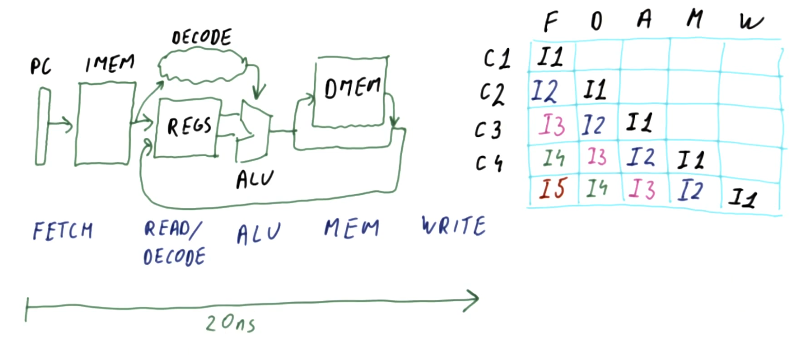 DECODE
PC IMEM
REGS
DMEM
ALU
FETCH READ/ ALU MEM WRITE
DECODE
20ns
F D A M W
C1 I1
C2 I2 I1
C3 I3 I2 I1
C4 I4 I3 I2 I1
I5 I4 I3 I2 I1